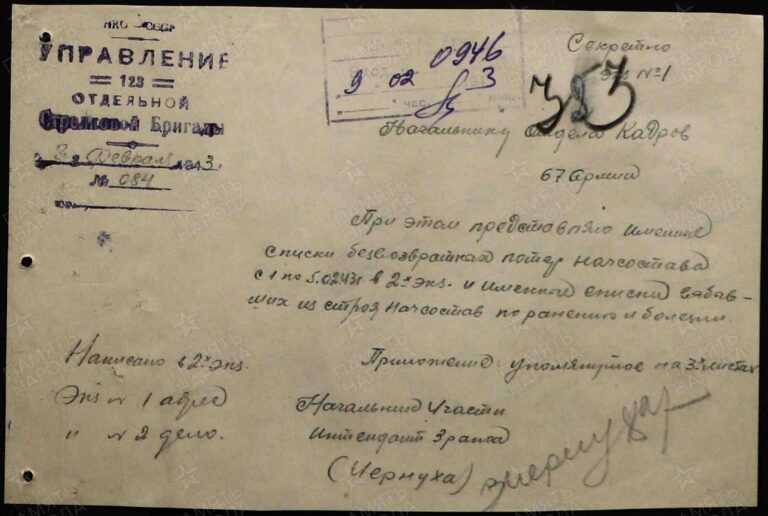 НКО СССР
УПРАВЛЕНИЕ
= 123 =
ОТДЕЛЬНОЙ
Стрелковой Бригады
8 февраля 1943
№ 084
0946
9 02 3
Секретно
Экз №1
353
Начальнику Отдела Кадров
67 Армии
При этом представляю именные
списки безвозвратных потер начсостава
с 1 по 5.02.43г. в 2х экз. и именной списки выбыв-
ших из строя начсостав по ранению и болезни.
Приложение: упомянутое на 3х листах
Написано в 2х экз.
Экз № 1 адрес
" № 2 дело.
Начальник 4 части
Интендант 3 ранга
(Чернуха)